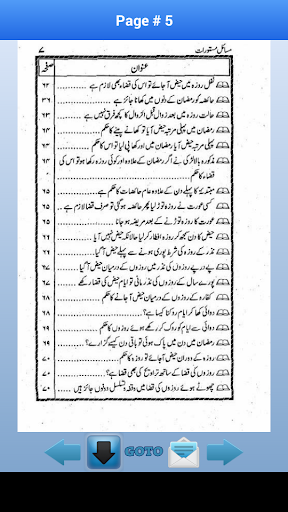 Page # 5
۷
مسائل مستورات
عنوان
صفحہ
نفل روزہ میں حیض آجائے تو اس کی قضاء بھی لازم ہے ۶۳
حائضہ کو رمضان کے دنوں میں کھانا جائز ہے ۶۳
حالت روزہ میں بعد زوال قبل الزوال کا حکم نہیں ہے ۶۳
رمضان میں پہلی مرتبہ حیض آیا تو کھانے پینے کا حکم ۶۳
رمضان میں پہلی مرتبہ حیض آیا اور کھا پی لیا تو اس کا حکم ۶۴
مذکورہ بالا لڑکی نے اگر رمضان کے علاوہ اور کوئی روزہ رکھا ہو تو اس کی ۶۴
قضاء کا حکم
مبتدئہ کا پہلے دن کے علاوہ عام حائضات کا حکم ہے ۶۵
کسی عورت نے روزہ توڑ لیا پھر حائضہ ہو گئی تو صرف قضاء لازم ہے ۶۵
عورت کا روزہ توڑنے کے بعد مریضہ ہو جانا ۶۵
حیض کا دن سمجھ کر روزہ افطار کر لیا حالانکہ حیض نہیں آیا
نذر کے روزوں کی شرط پوری ہونے سے پہلے حیض آگیا
پے در پے روزوں کی نذر میں روزوں کے درمیان حیض آگیا
پورے سال کے روزوں کی نذر مانی تو ایام حیض کی قضاء رکھے
کفارہ کے روزوں کے درمیان حیض آجانے کا حکم
دوائی سے ایام روکنا کیسا ہے؟
دوائی سے ایام کو روک کر رکھے ہوئے روزوں کا حکم
رمضان میں دن میں پاک ہوئی تو باقی دن کیسے گزارے؟ ۶۹
روزہ کے دوران حیض آجائے تو روزہ کا حکم
روزوں کی قضا کے ساتھ تراویح کی بھی قضا ہے؟ ۷۰
چھوٹے ہوئے روزوں کی قضا میں وقفہ و تسلسل دونوں جائز ہیں ۷۰
GOTO